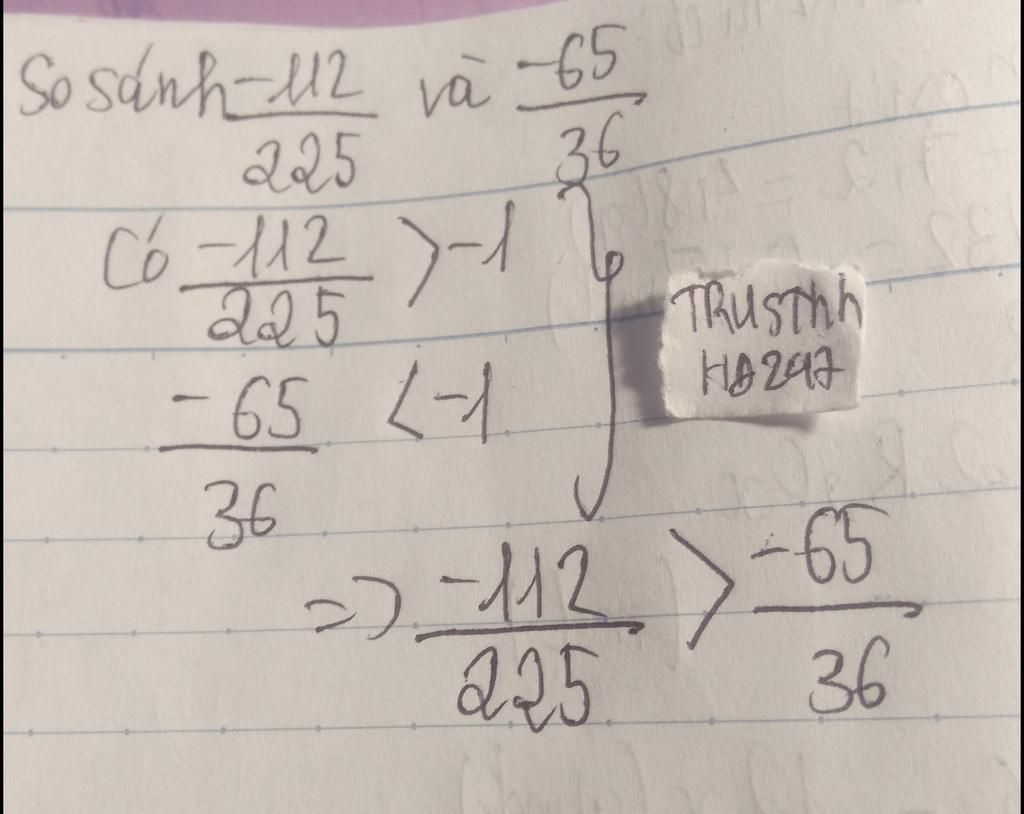 So sánh -112/225 và -65/36
Có -112/225 > -1
-65/36 < -1
TRUSThh
HA247
=> -112/225 > -65/36